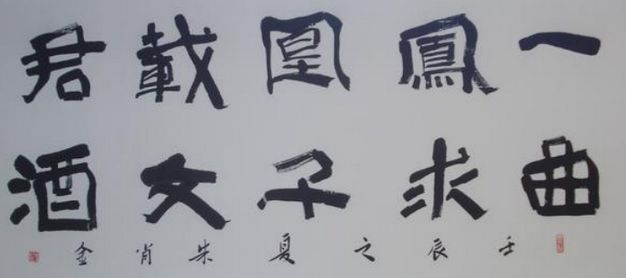 一曲
鳳求
凰千
載文
君酒
壬辰之夏朱肖金